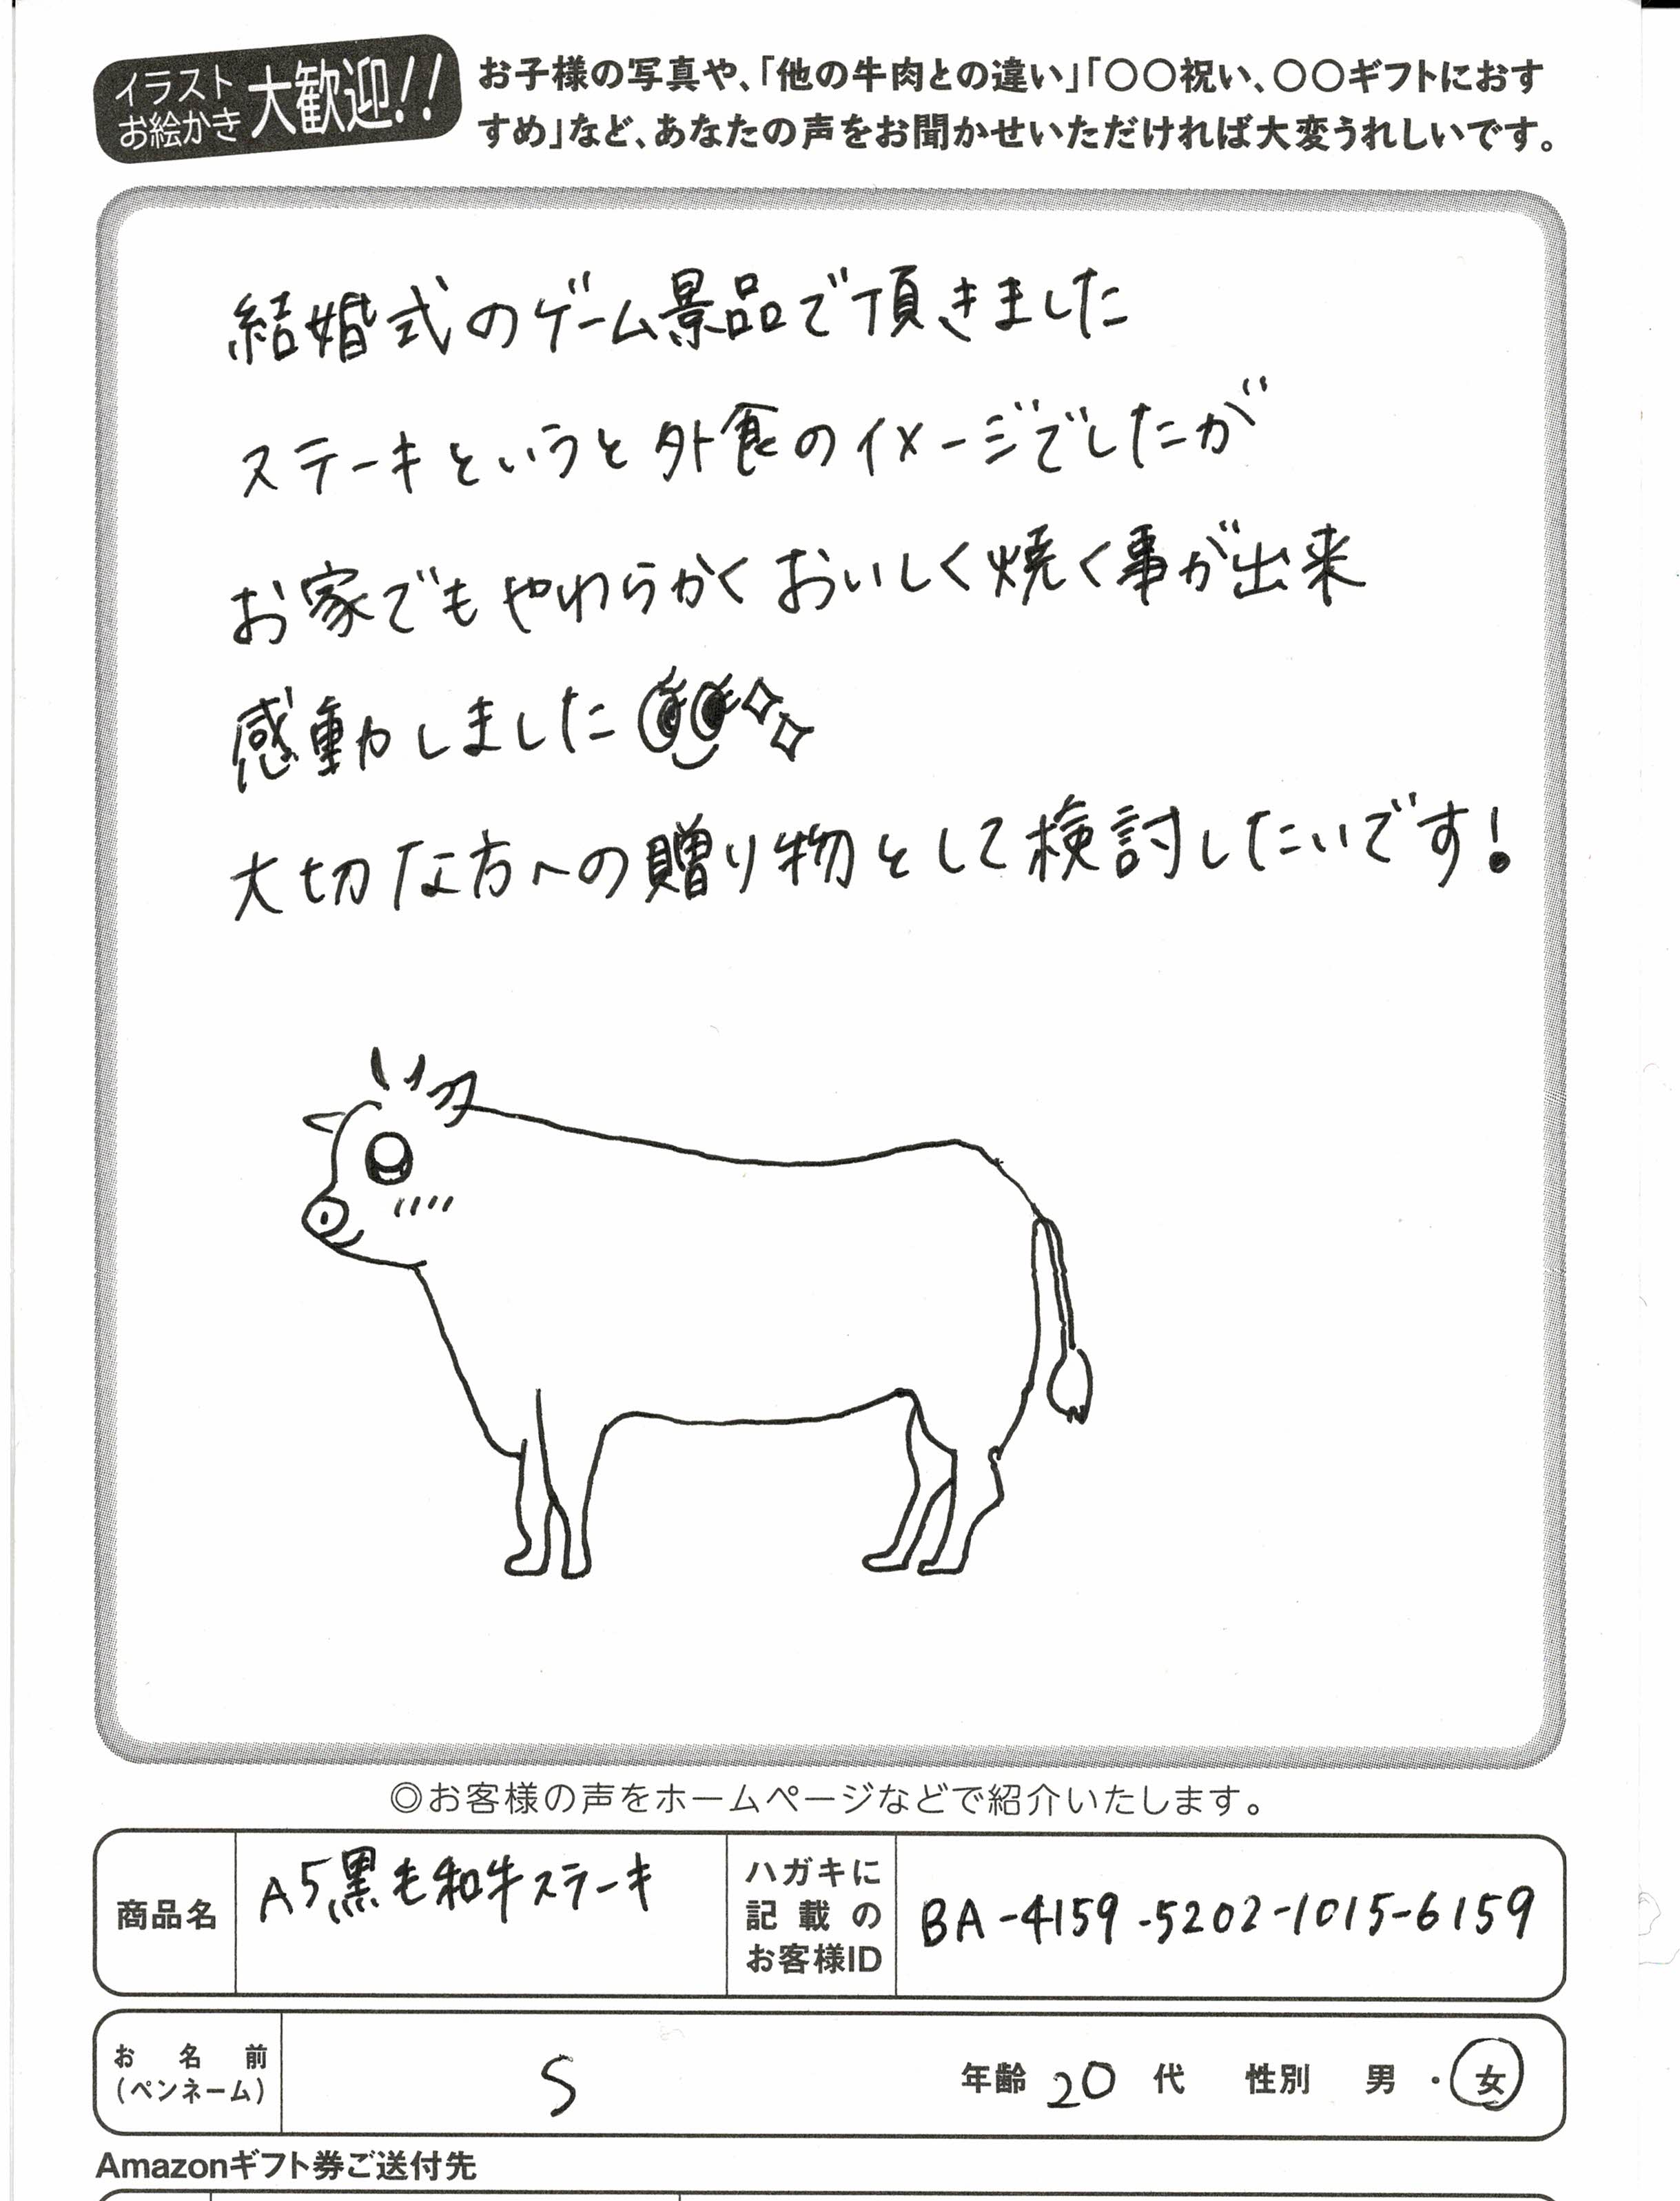 イラスト
お絵かき
大歓迎!!
お子様の写真や、「他の牛肉との違い」「〇〇祝い、〇〇ギフトにおす
すめ」など、あなたの声をお聞かせいただければ大変うれしいです。
結婚式のゲーム景品で頂きました
ステーキというと外食のイメージでしたが
お家でもやわらかくおいしく焼く事が出来
感動しました
大切な方への贈り物として検討したいです!
◎お客様の声をホームページなどで紹介いたします。
商品名
A5黒毛和牛ステーキ
ハガキに
記載の
お客様ID
BA-4159-5202-1015-6159
お名前
(ペンネーム)
S
年齢 20 代 性別 男・女
Amazonギフト券ご送付先